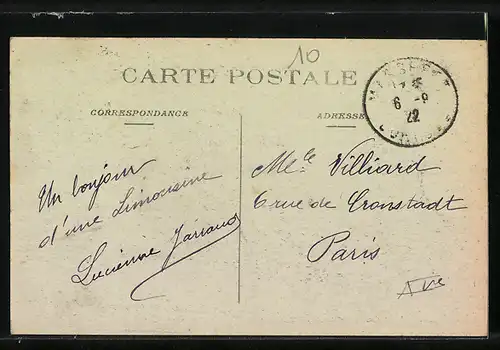 10
CARTE POSTALE
CORRESPONDANCE
ADRESSE
6 -9
22
Un bonjour
d'une Limousine
Lucienne
Mlle Villiard
6 rue de Cronstadt
Paris